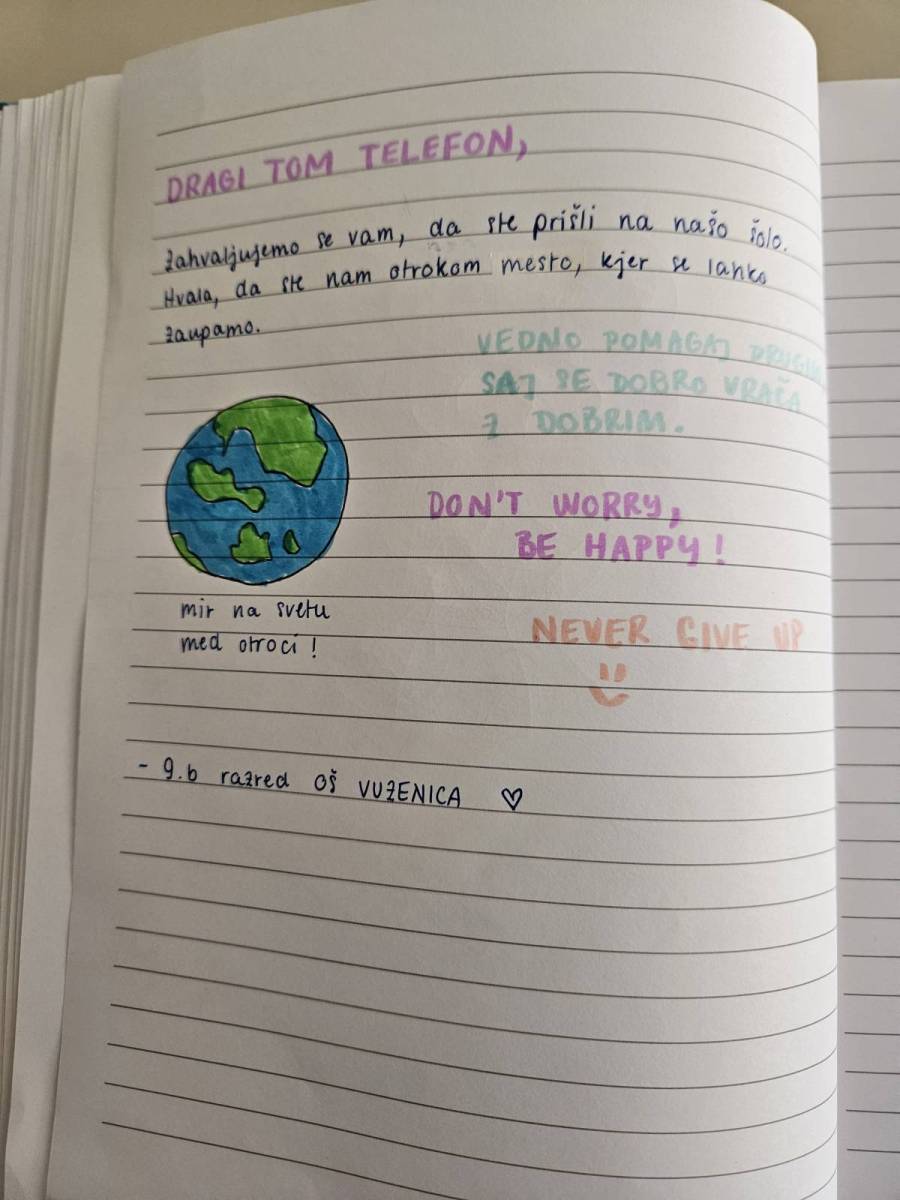 DRAGI TOM TELEFON,
Zahvaljujemo se vam, da ste prišli na našo šolo.
Hvala, da ste nam otrokom mesto, kjer se lahko
zaupamo.
VEDNO POMAGAJ DRUGIM
SAJ SE DOBRO VRAČA
Z DOBRIM.
DON'T WORRY,
BE HAPPY!
mir na svetu
med otroci!
NEVER GIVE UP
- 9.b razred OŠ VUZENICA ♡